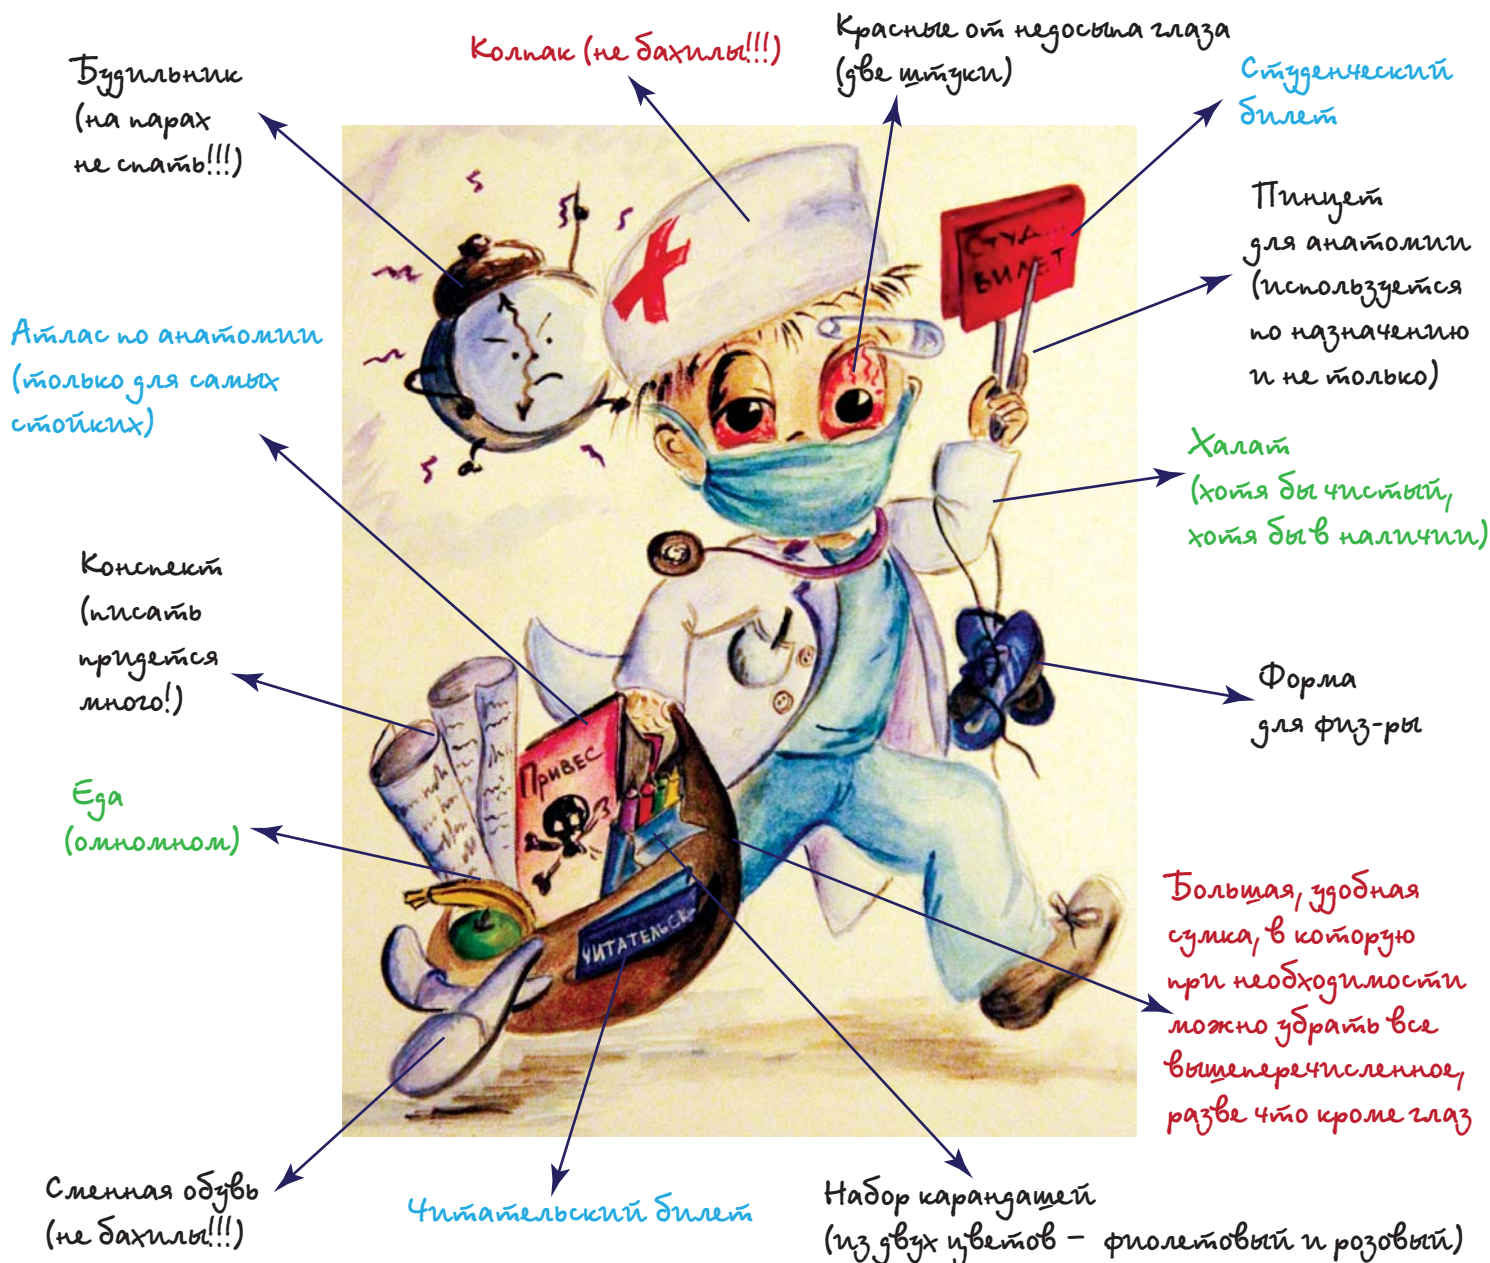 Будильник
(на парах
не спать!!!)
Колпак (не бахилы!!!)
Красные от недосыпа глаза
(две штуки)
Студенческий
билет
Пинцет
для анатомии
(используется
по назначению
и не только)
Атлас по анатомии
(только для самых
стойких)
Халат
(хотя бы чистый,
хотя бы в наличии)
Конспект
(писать
придется
много!)
Форма
для физ-ры
Еда
(омномном)
Большая, удобная
сумка, в которую
при необходимости
можно убрать все
вышеперечисленное,
разве что кроме глаз
Сменная обувь
(не бахилы!!!)
Читательский билет
Набор карандашей
(из двух цветов – фиолетовый и розовый)
СТУД...
БИЛЕТ
ПРИВЕС
ЧИТАТЕЛЬСК